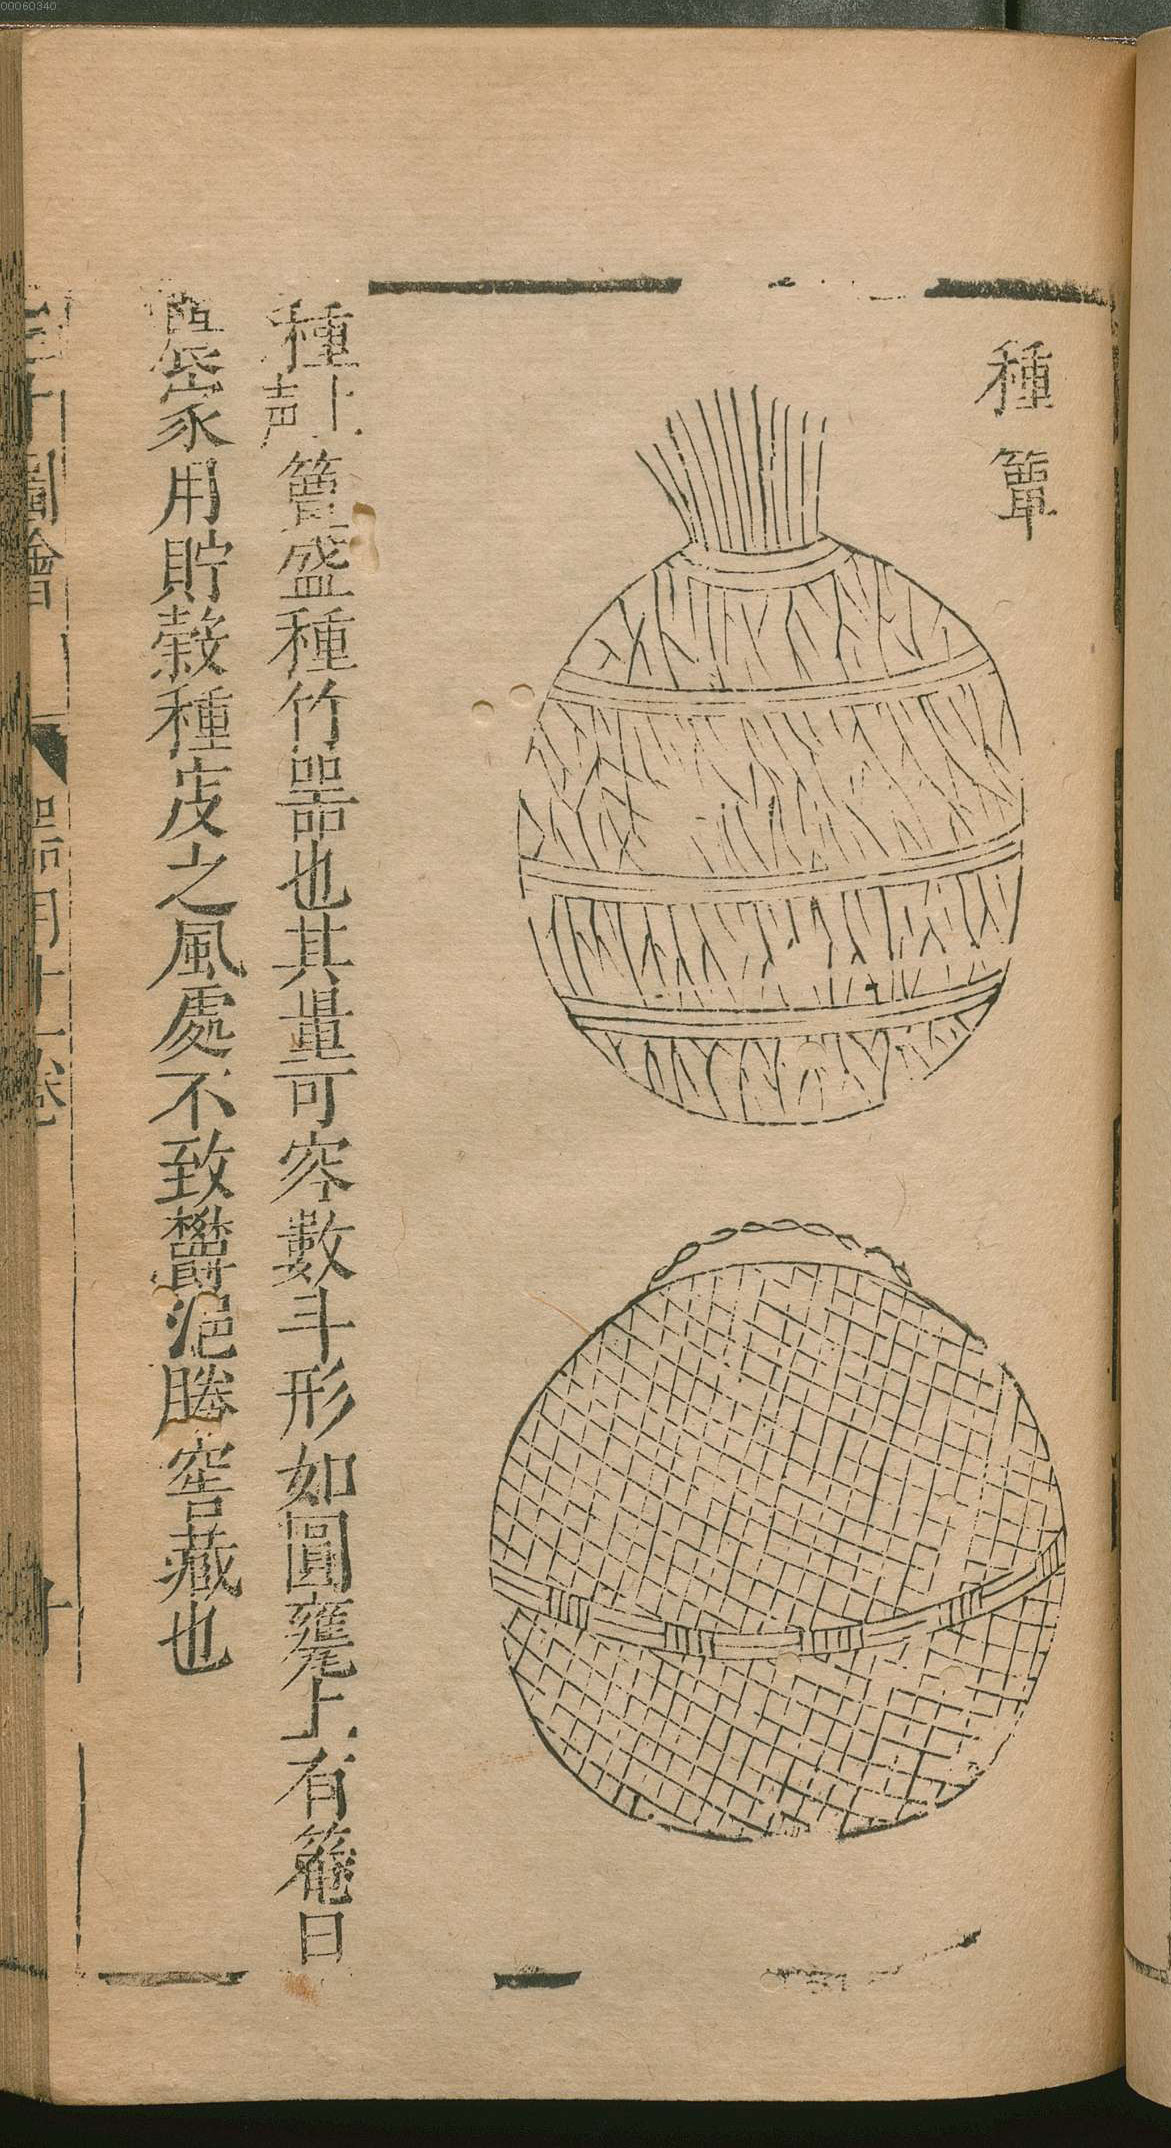 00060340
種簞
種上聲簞盛種竹器也其量可容數斗形如圓甕上有籠口
農家用貯穀種庋之風處不致鬱浥勝窖藏也
三才圖會 器用十一卷